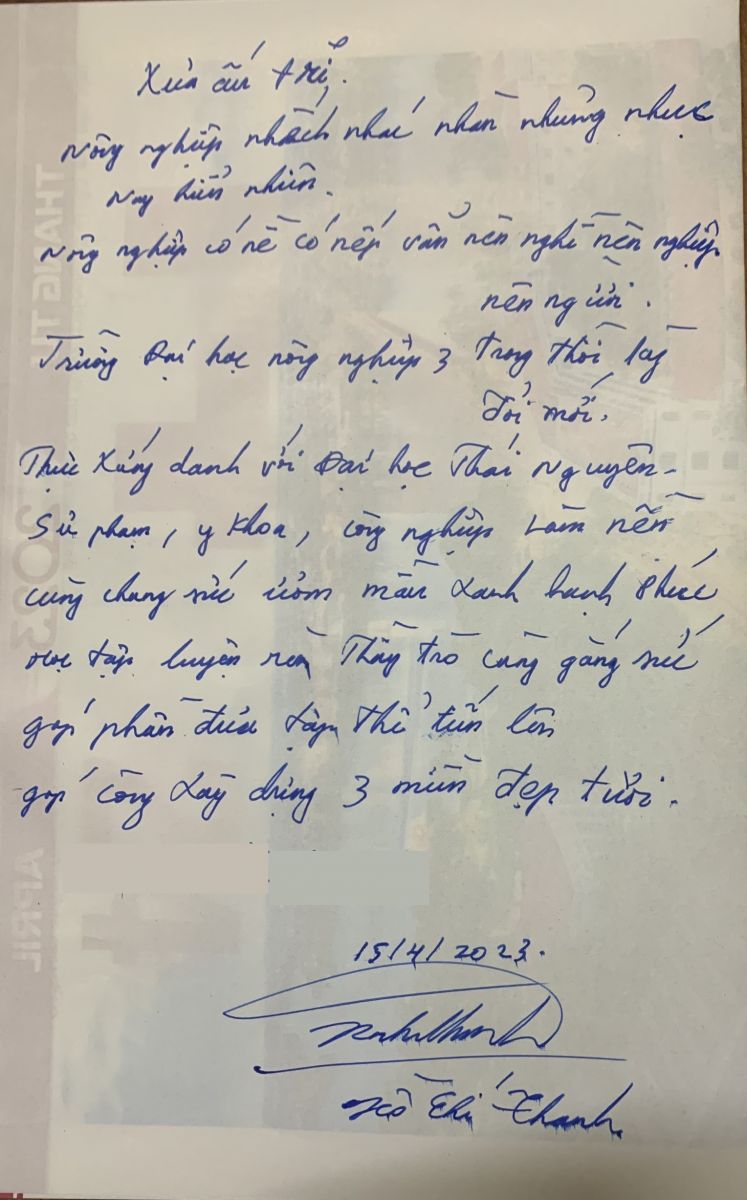 Xưa ấu trĩ.
nông nghiệp nhếch nhác nhàn nhưng nhục
Nay hiển nhiên.
Nông nghiệp có nề có nếp vẫn nên nghĩ nên nghiệp
nên người.
Trường Đại học nông nghiệp 3 trong thời kỳ
đổi mới.
Thực xứng danh với Đại học Thái Nguyên.
Sư phạm, y khoa, công nghiệp làm nền
cùng chung sức ươm mầu xanh hạnh phúc
Học tập luyện rèn Thầy trò cùng gắng sức
góp phần đưa tập thể tiến lên
góp công xây dựng 3 miền đẹp tươi.
15/4/2023.
Thanh
THÁNG TƯ
2023
APRIL